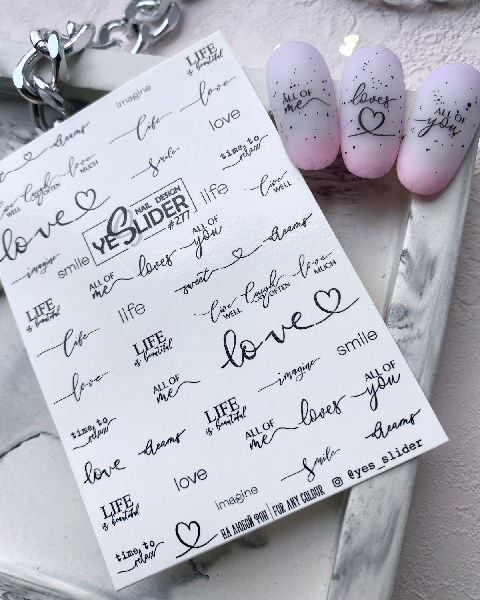 LIFE
is beautiful
imagine
love
dreams
life
love
smile
time to
relax
live laugh love
WELL OFTEN MUCH
love
NAIL DESIGN
YESLIDER
#277
life
live
WELL
imagine
smile
ALL OF
me loves
ALL OF
you
sweet dreams
LIFE
is beautiful
life
live laugh love
WELL OFTEN MUCH
life
LIFE
is beautiful
love
love
ALL OF
me
imagine
smile
time to
relax
dreams
LIFE
is beautiful
ALL OF
me loves
ALL OF
you
love
love
smile
dreams
LIFE
is beautiful
imagine
time to
relax
НА ЛЮБОЙ ФОН | FOR ANY COLOUR
@yes_slider
ALL OF
me
loves
ALL OF
you